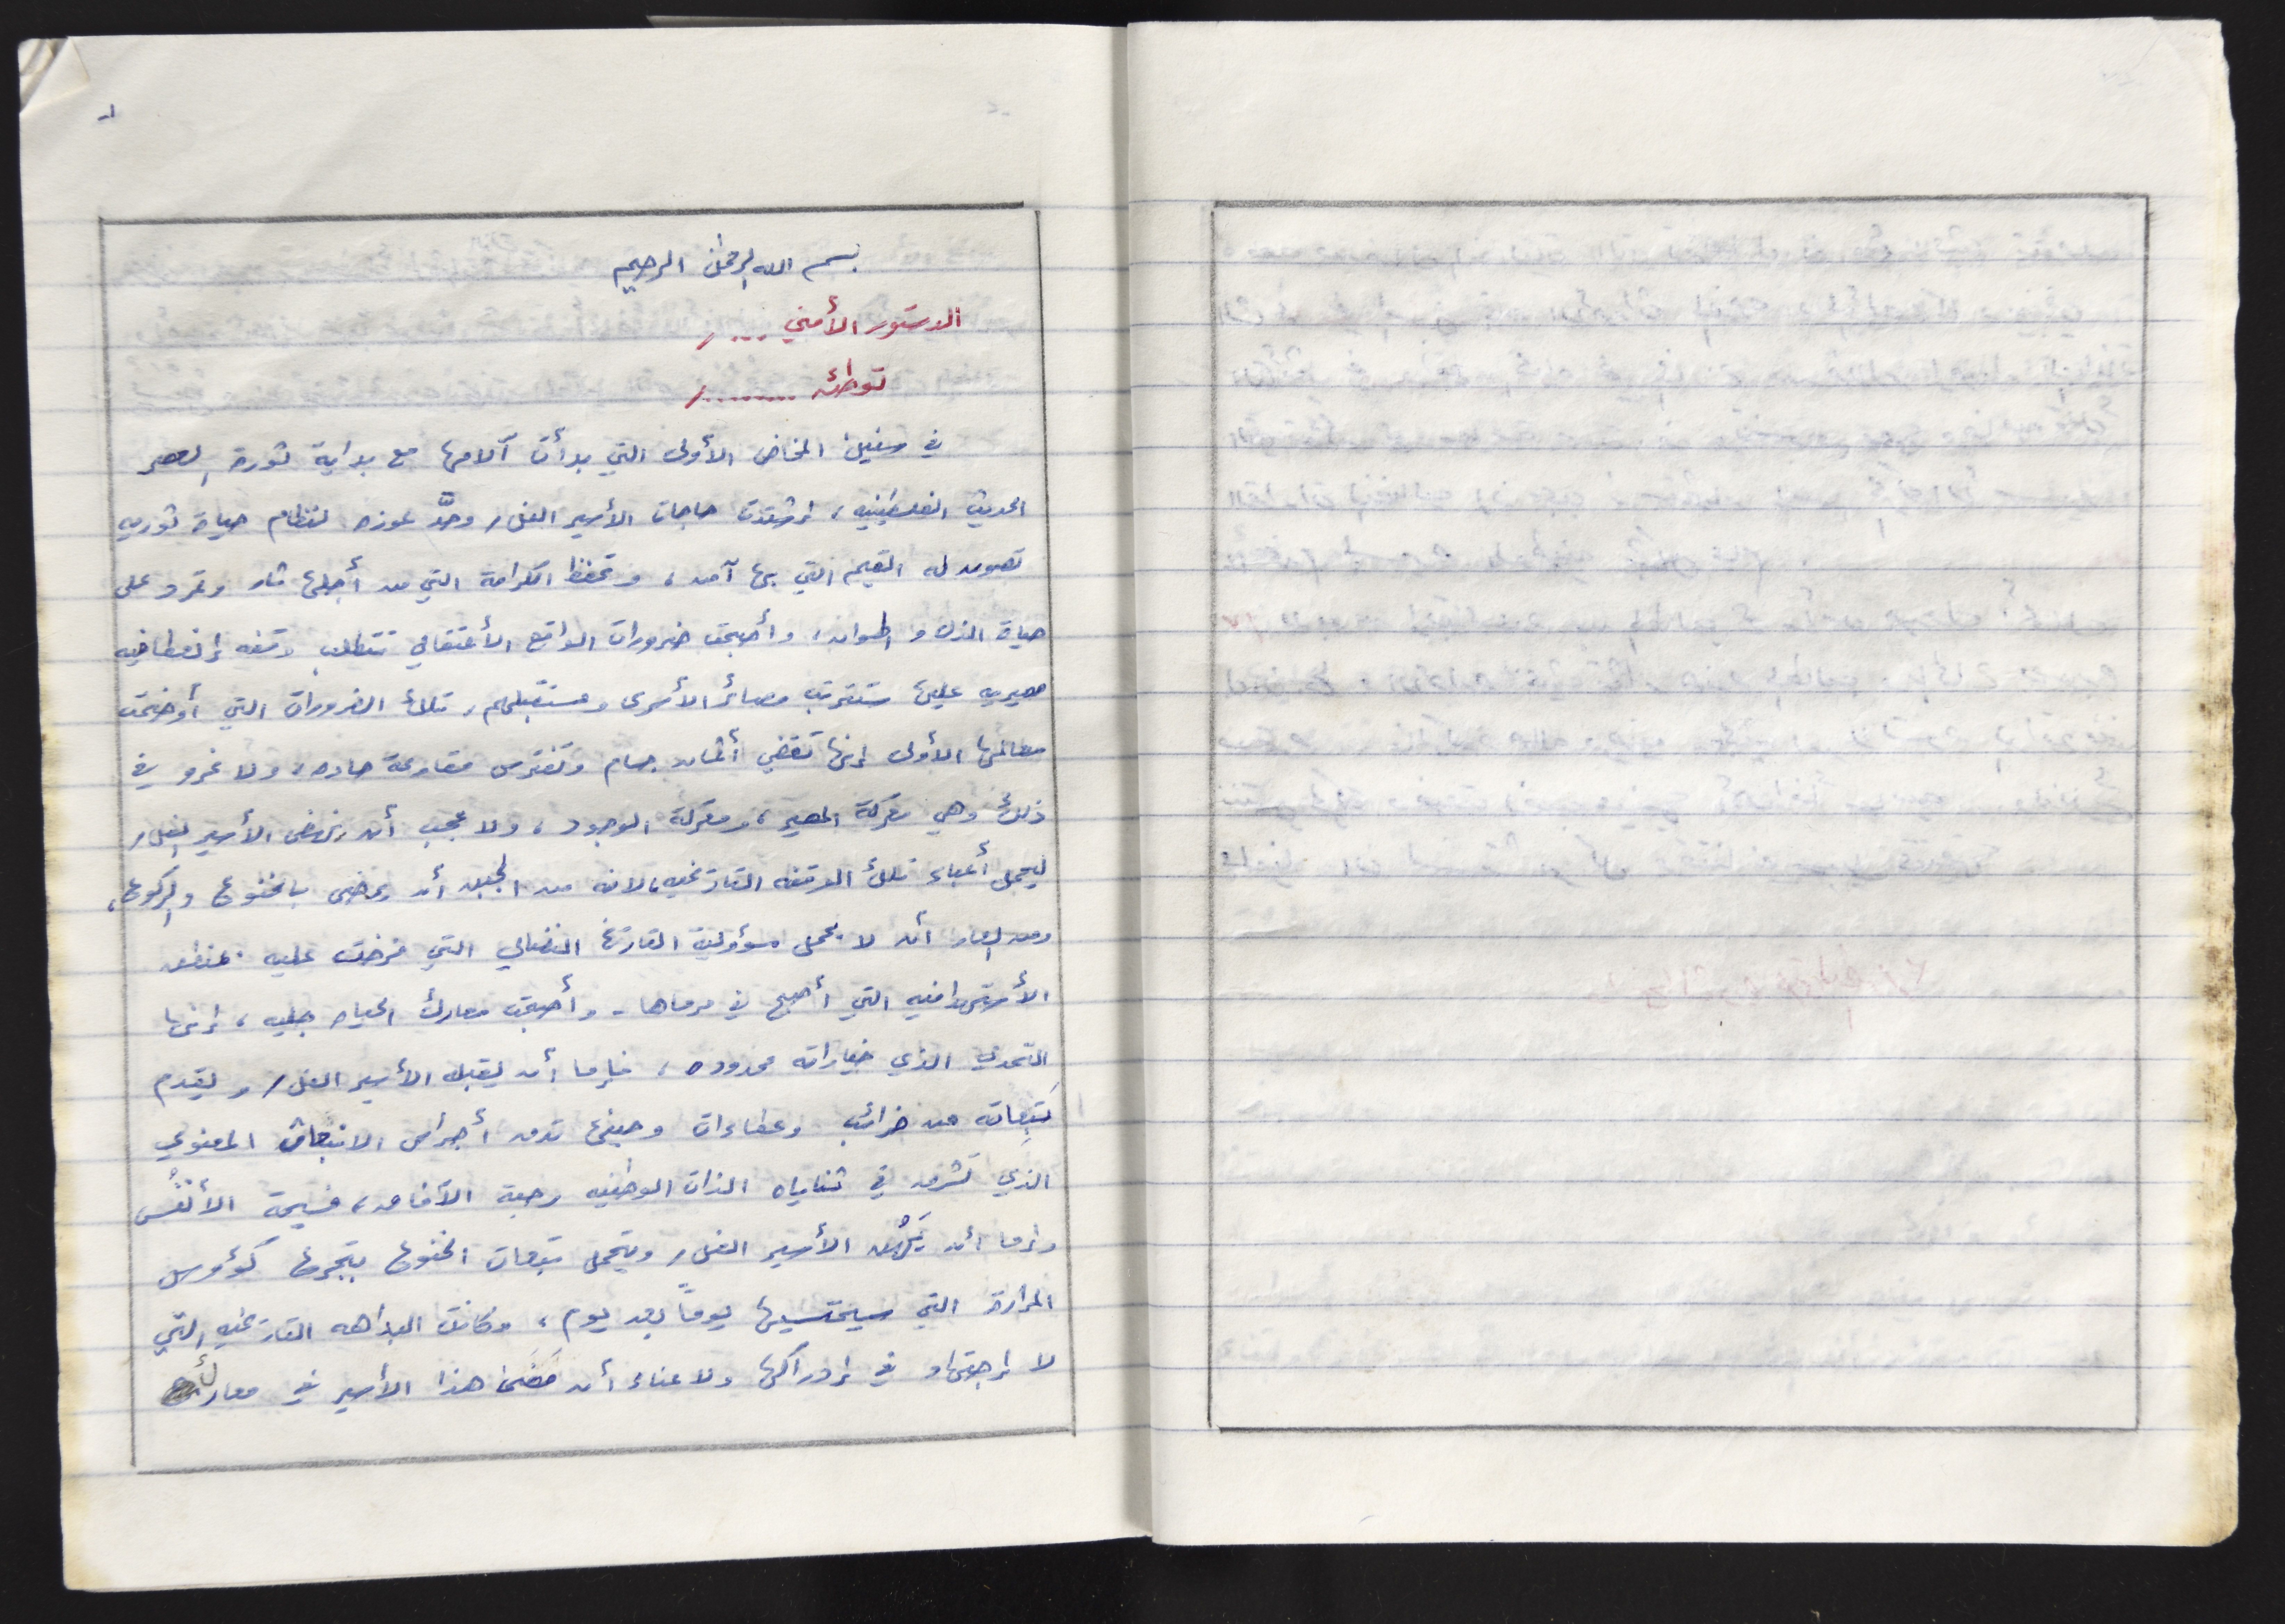 بسم الله الرحمن الرحيم
الدستور الأمني .... /
توطئه ......... /
في سنين المخاض الأولى التي بدأت آلامها مع بداية ثورة العصر
الحديث الفلسطينيه، إشتدت حاجات الأسير الفذ/ وحدَّ عوزه لنظام حياة ثوريه
تصون له القيم التي بها آمن، وتحفظ الكرامة التي من أجلها ثار وتمرد على
حياة الذل و الهوان، وأصبحت ضرورات الواقع الأعتقالي تتطلب وقفه إنعطافيه
مصيريه عليها ستترتب مصائر الأسرى ومستقبلهم، تلك الضرورات التي أوضحت
معالمها الأولى إنها تقضي أثمان جسام وتفترس مقاومة حاده، ولا غرو في
ذلك وهي معركة المصير، ومعركة الوجود، ولا عجب أن ينهض الأسير الفذ/
ليحمل أعباء تلك الوقفه التاريخيه، لانه من الجبن أن يرضى بالخنوع والركوع،
ومن العار أن لا يحمل مسؤولية القارئ النضالي التي فرضت عليه بمنطق
الأستهدافيه التي أصبح في مرماها - وأصبحت معارك الحياه جليه، إنها
التحدي الذي خياراته محدوده، فإما أن يقبله الأسير الفذ/ و ليقدم
كتبعاته من ضرائب وعطاءات وحينها تدق أجراس الانبعاث المعنوي
الذي تشرق في ثناياه الذات الوطنيه رحبة الآفاق، فسيحة الأنفُس
وإما أن يَهُن الأسير الفذ/ ويتحمل تبعات الخنوع بتجرع كؤوس
المرارة التي سيحتسيها يوماً بعد يوم، وكانت البداهه التاريخيه التي
لا إجتهاد في إدراكها ولا عناء أن مَضَى هذا الأسير في معارك